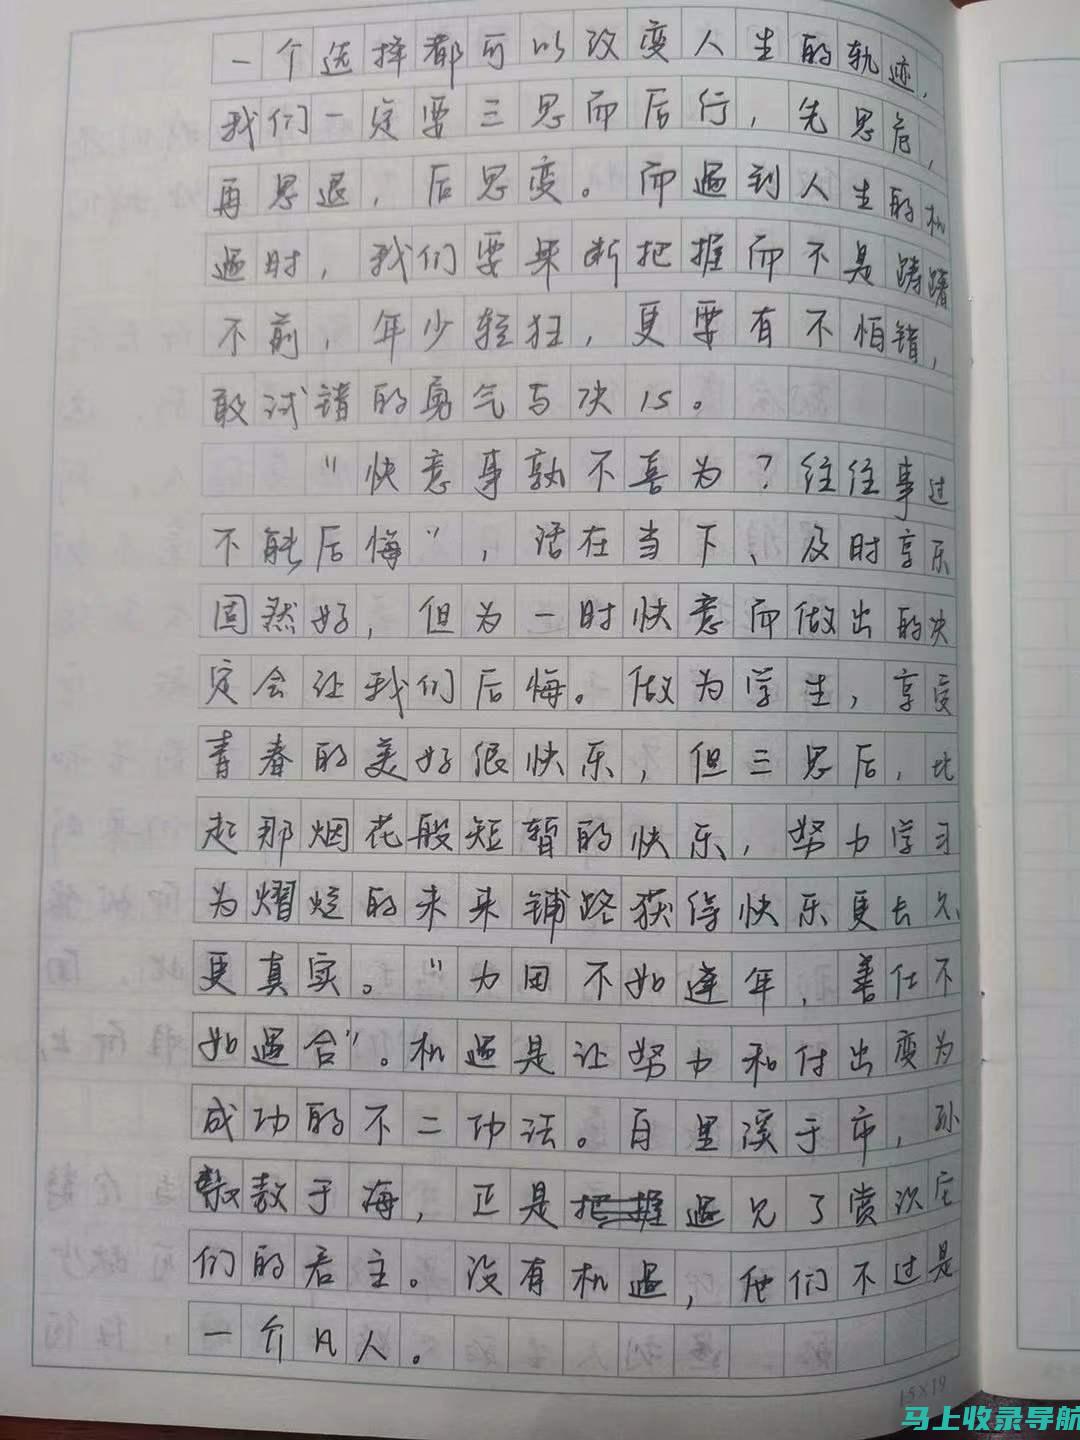 一个选择都可以改变人生的轨迹，
我们一定要三思而后行，先思危，
再思退，后思变。而遇到人生的机
遇时，我们要果断把握而不是踌躇
不前，年少轻狂，更要有不怕错，
敢试错的勇气与决心。
“快意事孰不喜为？往往事过
不能后悔”，活在当下、及时享乐
固然好，但为一时快意而做出的决
定会让我们后悔。做为学生，享受
青春的美好很快乐，但三思后，比
起那烟花般短暂的快乐，努力学习
为熠烂的未来铺路获得快乐更长久
更真实。“力田不如逢年，善仕不
如遇合”。机遇是让努力和付出变为
成功的不二功法。百里溪于市，孙
敖于海，正是遇见了赏识它
们的君主。没有机遇，他们不过是
一介凡人。
15×19
马上收录导航